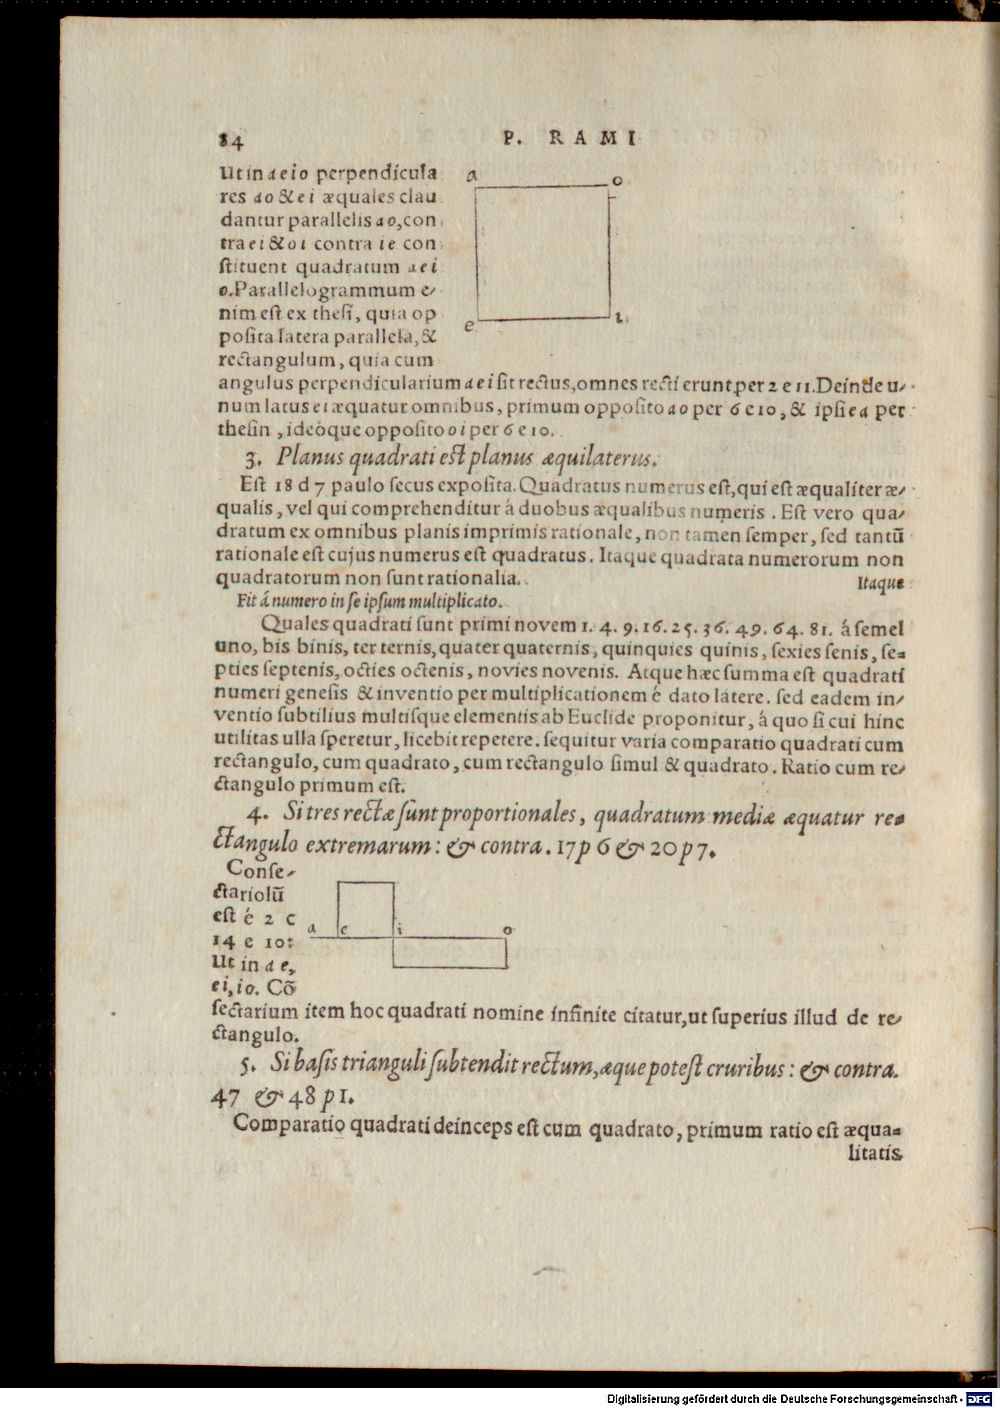 84 P. RAMI
Ut in aeio perpendicula
res ao & ei æquales clau
dantur parallelis ao, con
tra ei & oi contra ie con
stituent quadratum aei
o. Parallelogrammum e-
nim est ex thesi, quia op
posita latera parallela, &
rectangulum, quia cum
angulus perpendicularium aei sit rectus, omnes recti erunt per 2 e 11. Deinde u-
num latus ei æquatur omnibus, primum opposito ao per 6 e 10, & ipsi ea per
thesin, ideoque opposito oi per 6 e 10.
a o
e i
3. Planus quadrati est planus æquilaterus.
Est 18 d 7 paulo secus exposita. Quadratus numerus est, qui est æqualiter æ-
qualis, vel qui comprehenditur á duobus æqualibus numeris. Est vero qua-
dratum ex omnibus planis imprimis rationale, non tamen semper, sed tantū
rationale est cujus numerus est quadratus. Itaque quadrata numerorum non
quadratorum non sunt rationalia. Itaque
Fit á numero in se ipsum multiplicato.
Quales quadrati sunt primi novem 1. 4. 9. 16. 25. 36. 49. 64. 81. á semel
uno, bis binis, ter ternis, quater quaternis, quinquies quinis, sexies senis, se-
pties septenis, octies octenis, novies novenis. Atque hæc summa est quadrati
numeri genesis & inventio per multiplicationem é dato latere. sed eadem in-
ventio subtilius multisque elementis ab Euclide proponitur, á quo si cui hinc
utilitas ulla speretur, licebit repetere. sequitur varia comparatio quadrati cum
rectangulo, cum quadrato, cum rectangulo simul & quadrato. Ratio cum re-
ctangulo primum est.
4. Si tres rectæ sunt proportionales, quadratum mediæ æquatur re-
ctangulo extremarum: & contra. 17 p 6 & 20 p 7.
Conse-
ctariolū
est é 2 c
14 e 10:
Ut in a e,
ei, io. Cō
a e i o
sectarium item hoc quadrati nomine infinite citatur, ut superius illud de re-
ctangulo.
5. Si basis trianguli subtendit rectum, æque potest cruribus: & contra.
47 & 48 p 1.
Comparatio quadrati deinceps est cum quadrato, primum ratio est æqua-
litatis
Digitalisierung gefördert durch die Deutsche Forschungsgemeinschaft - DFG